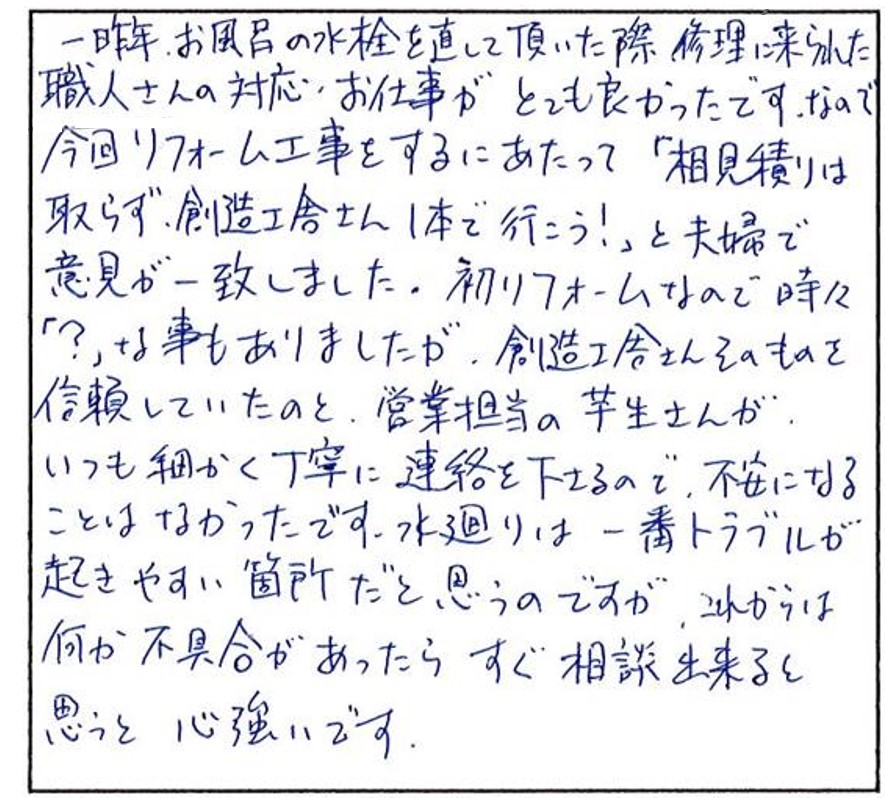 一昨年、お風呂の水栓を直して頂いた際 修理に来られた
職人さんの対応・お仕事が とても良かったです。なので
今回リフォーム工事をするにあたって「相見積りは
取らず、創造工舎さん1本で行こう!」と夫婦で
意見が一致しました。初リフォームなので時々
「?」な事もありましたが、創造工舎さんそのものを
信頼していたのと、営業担当の芋生さんが、
いつも細かく丁寧に連絡を下さるので、不安になる
ことはなかったです。水廻りは一番トラブルが
起きやすい箇所だと思うのですが、これからは
何か不具合があったらすぐ相談出来ると
思うと 心強いです。